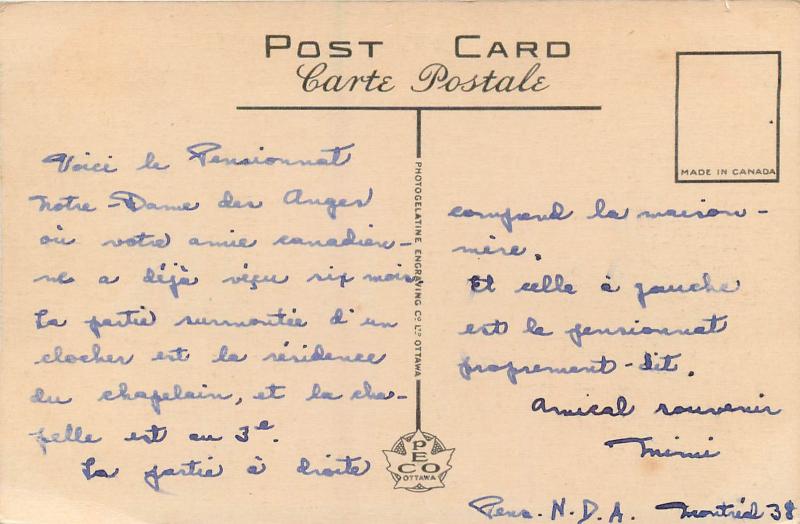 POST CARD
Carte Postale
MADE IN CANADA
Voici le Pensionnat
Notre-Dame des Anges
où votre amie canadien-
ne a déjà véçu six mois
La partie surmontée d'un
clocher est la résidence
du chapelain, et la cha-
pelle est au 3e.
La partie à droite
PHOTOGELATINE ENGRAVING Co LTD OTTAWA
PECO
OTTAWA
comprend la maison-
mère.
Et celle à gauche
est le pensionnat
proprement-dit.
Amical souvenir
Mimi
Pens. N.D.A. Montréal 38